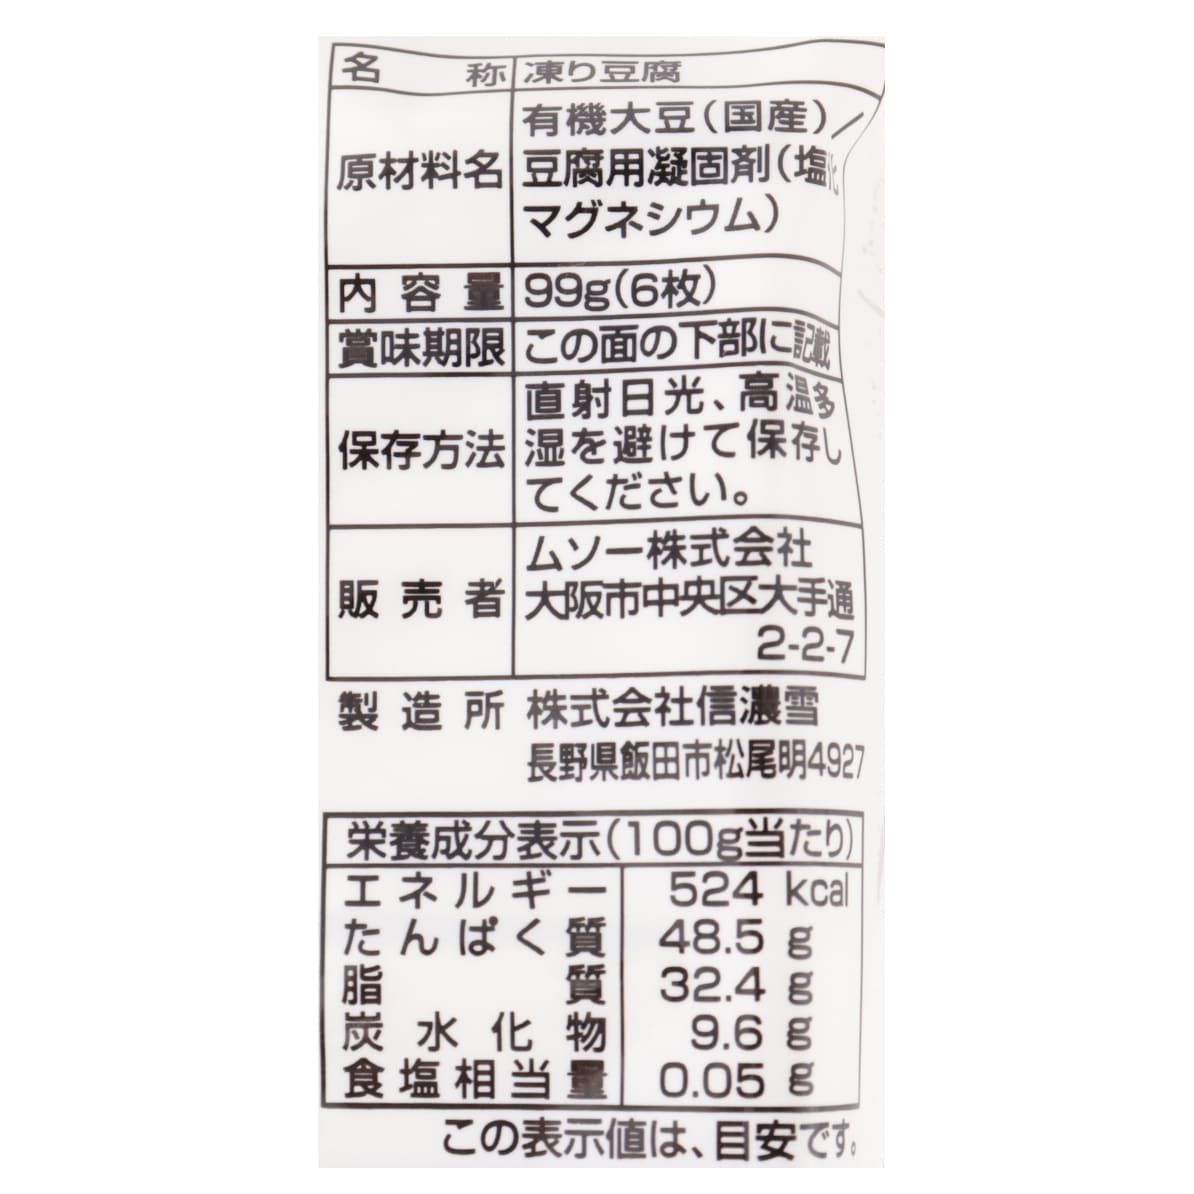 名称 凍り豆腐
原材料名 有機大豆(国産)／
豆腐用凝固剤(塩化
マグネシウム)
内容量 99g(6枚)
賞味期限 この面の下部に記載
保存方法 直射日光、高温多
湿を避けて保存し
てください。
販売者 ムソー株式会社
大阪市中央区大手通
2-2-7
製造所 株式会社信濃雪
長野県飯田市松尾明4927
栄養成分表示(100g当たり)
エネルギー 524 kcal
たんぱく質 48.5 g
脂質 32.4 g
炭水化物 9.6 g
食塩相当量 0.05 g
この表示値は、目安です。